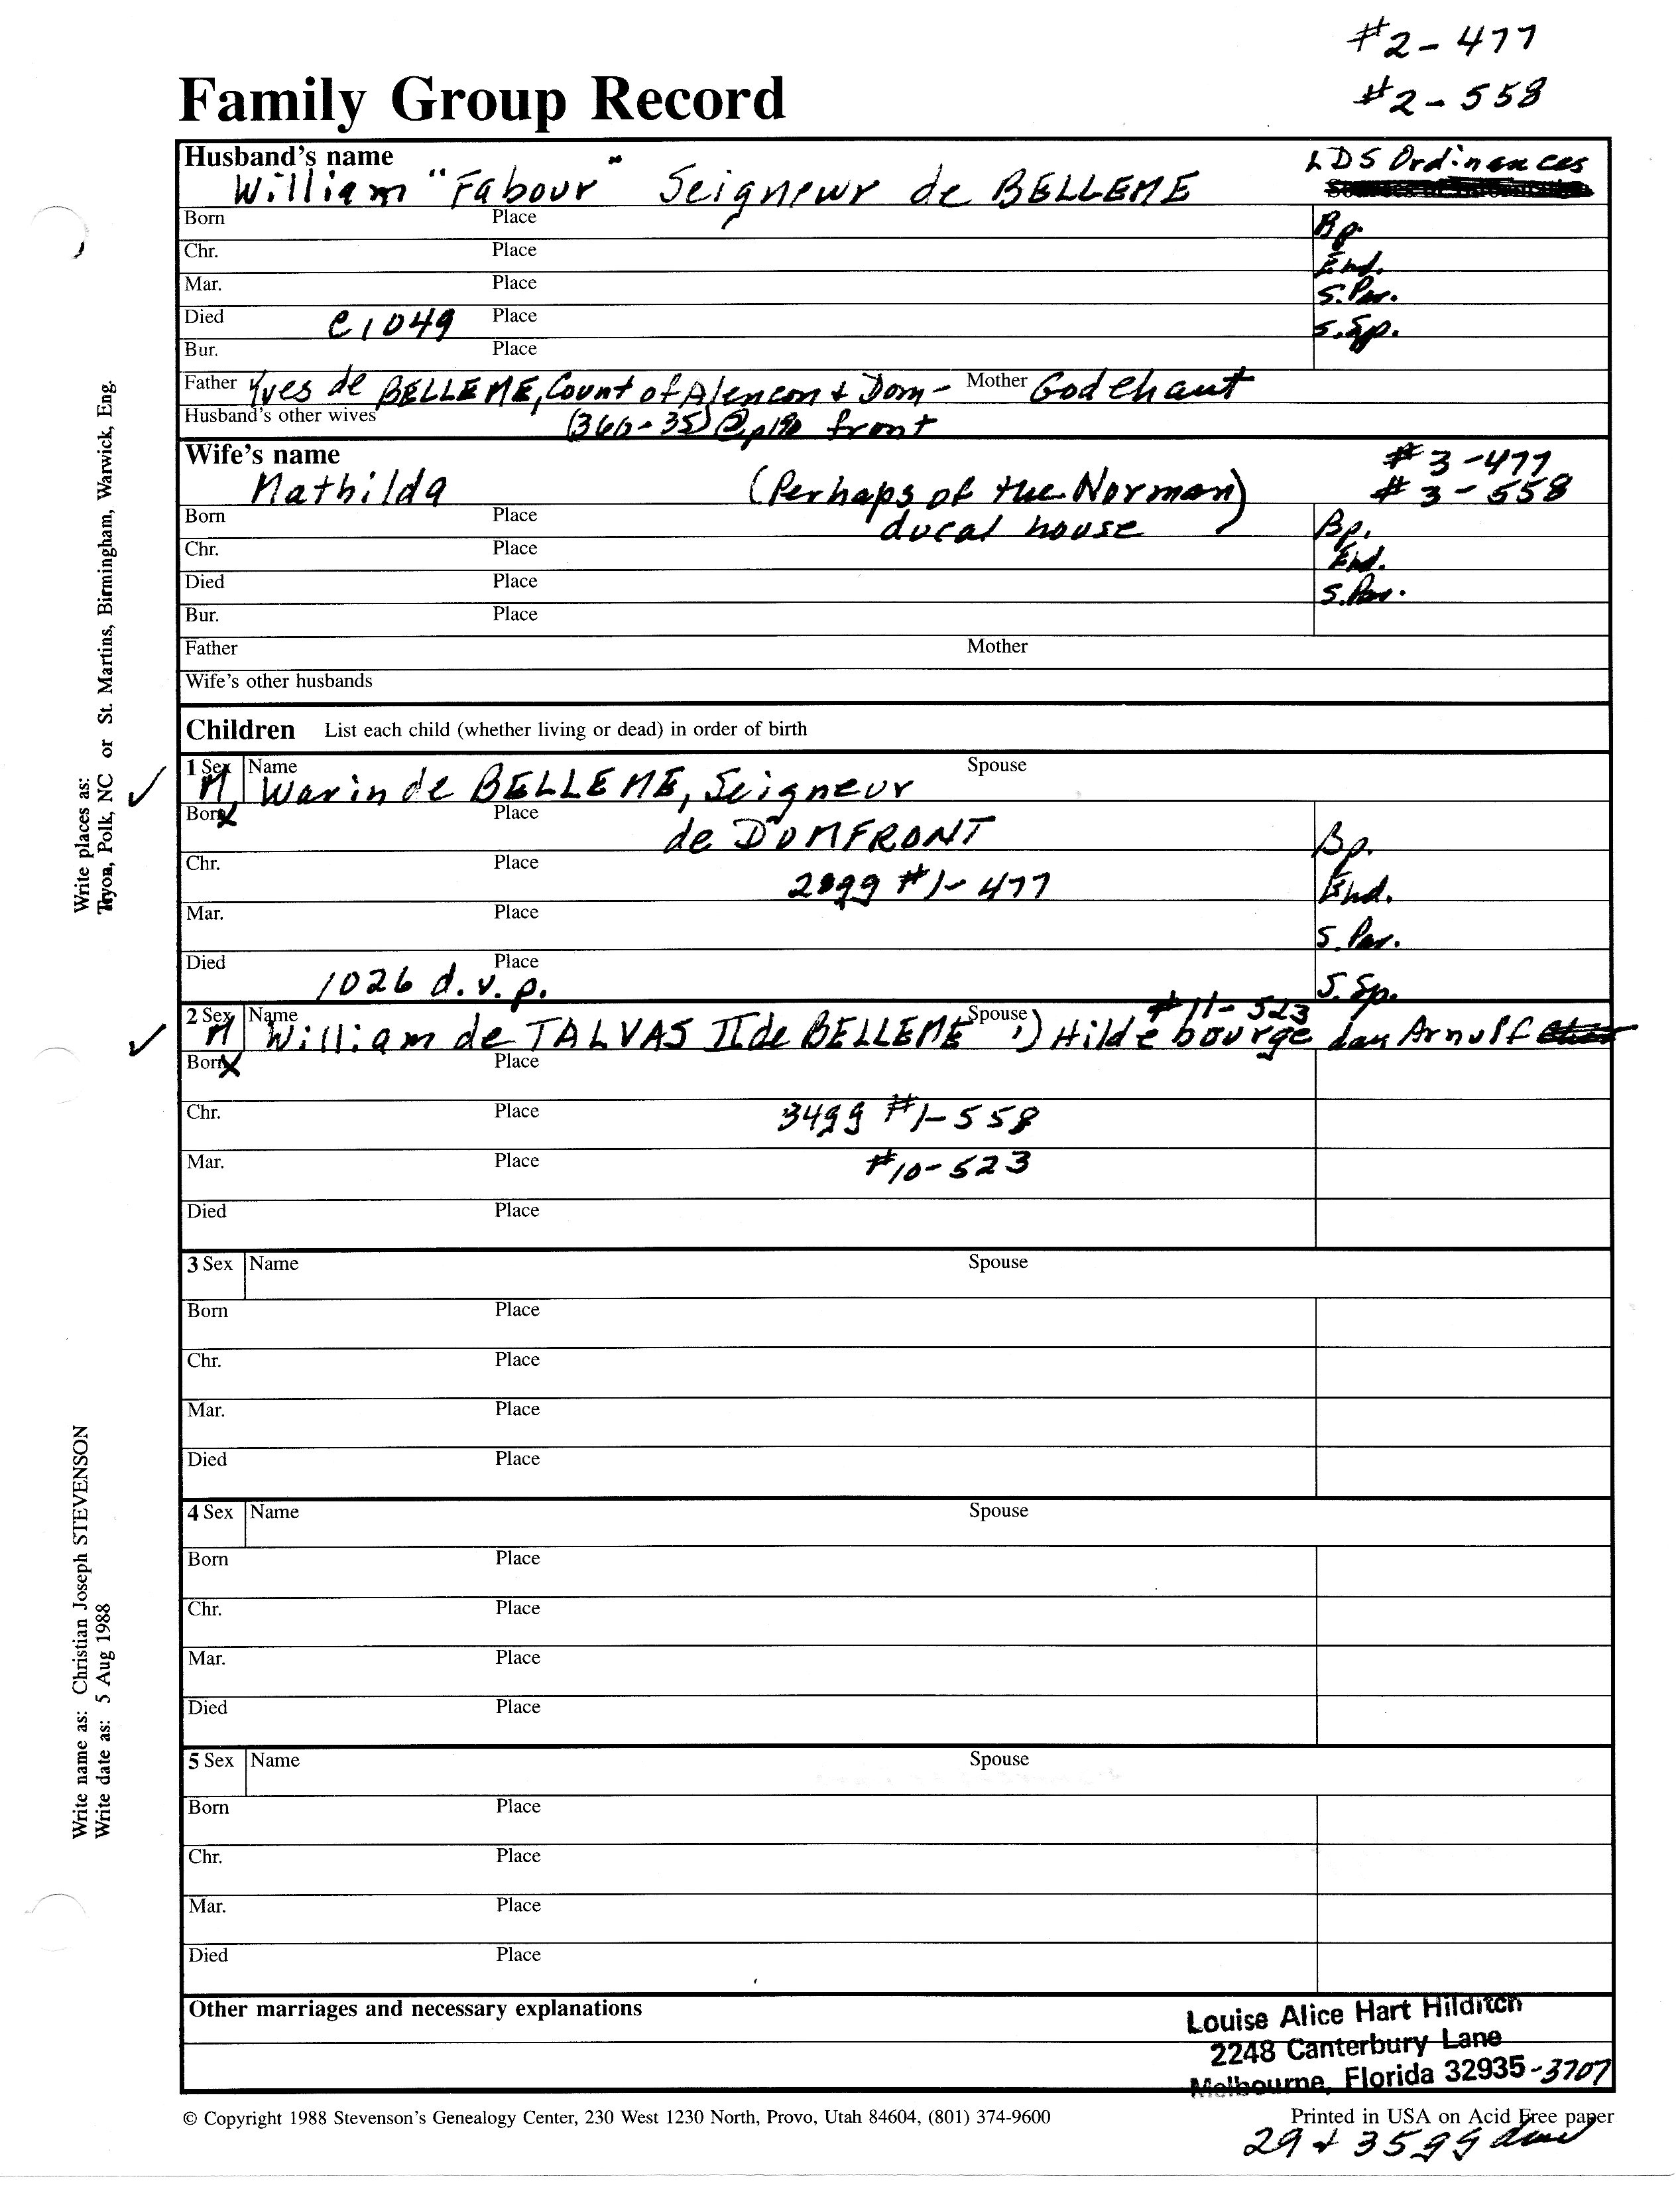 #2-477
Family Group Record
#2-558
Husband's name
LDS Ordinances
William "Fabour" Seigneur de BELLEME
Born Place Bp.
Chr. Place End.
Mar. Place S. Par.
Died c1049 Place S. Sp.
Bur. Place
Father Yves de BELLEME, Count of Alencon + Dom- Mother Godehaut
Husband's other wives (360-35) @ p190 front
Wife's name
#3-477
Mathilda (Perhaps of the Norman) #3-558
Born Place ducal house Bp.
Chr. Place End.
Died Place S. Par.
Bur. Place
Father Mother
Wife's other husbands
Children List each child (whether living or dead) in order of birth
1 Sex Name Spouse
M Warin de BELLEME, Seigneur
Born X Place
de DOMFRONT Bp.
Chr. Place
#1-477 End.
Mar. Place
S. Par.
Died Place
1026 d.v.p. S. Sp.
#11-523
2 Sex Name Spouse
M William de TALVAS II de BELLEME 1) Hildebourge dau Arnulf
Born X Place
Chr. Place 34gg #1-558
Mar. Place #10-523
Died Place
3 Sex Name Spouse
Born Place
Chr. Place
Mar. Place
Died Place
4 Sex Name Spouse
Born Place
Chr. Place
Mar. Place
Died Place
5 Sex Name Spouse
Born Place
Chr. Place
Mar. Place
Died Place
Other marriages and necessary explanations
Louise Alice Hart Hilditch
2248 Canterbury Lane
Melbourne, Florida 32935-3707
© Copyright 1988 Stevenson's Genealogy Center, 230 West 1230 North, Provo, Utah 84604, (801) 374-9600
Printed in USA on Acid Free paper
29 + 35gg
Write places as:
Tryon, Polk, NC or St. Martins, Birmingham, Warwick, Eng.
Write name as: Christian Joseph STEVENSON
Write date as: 5 Aug 1988